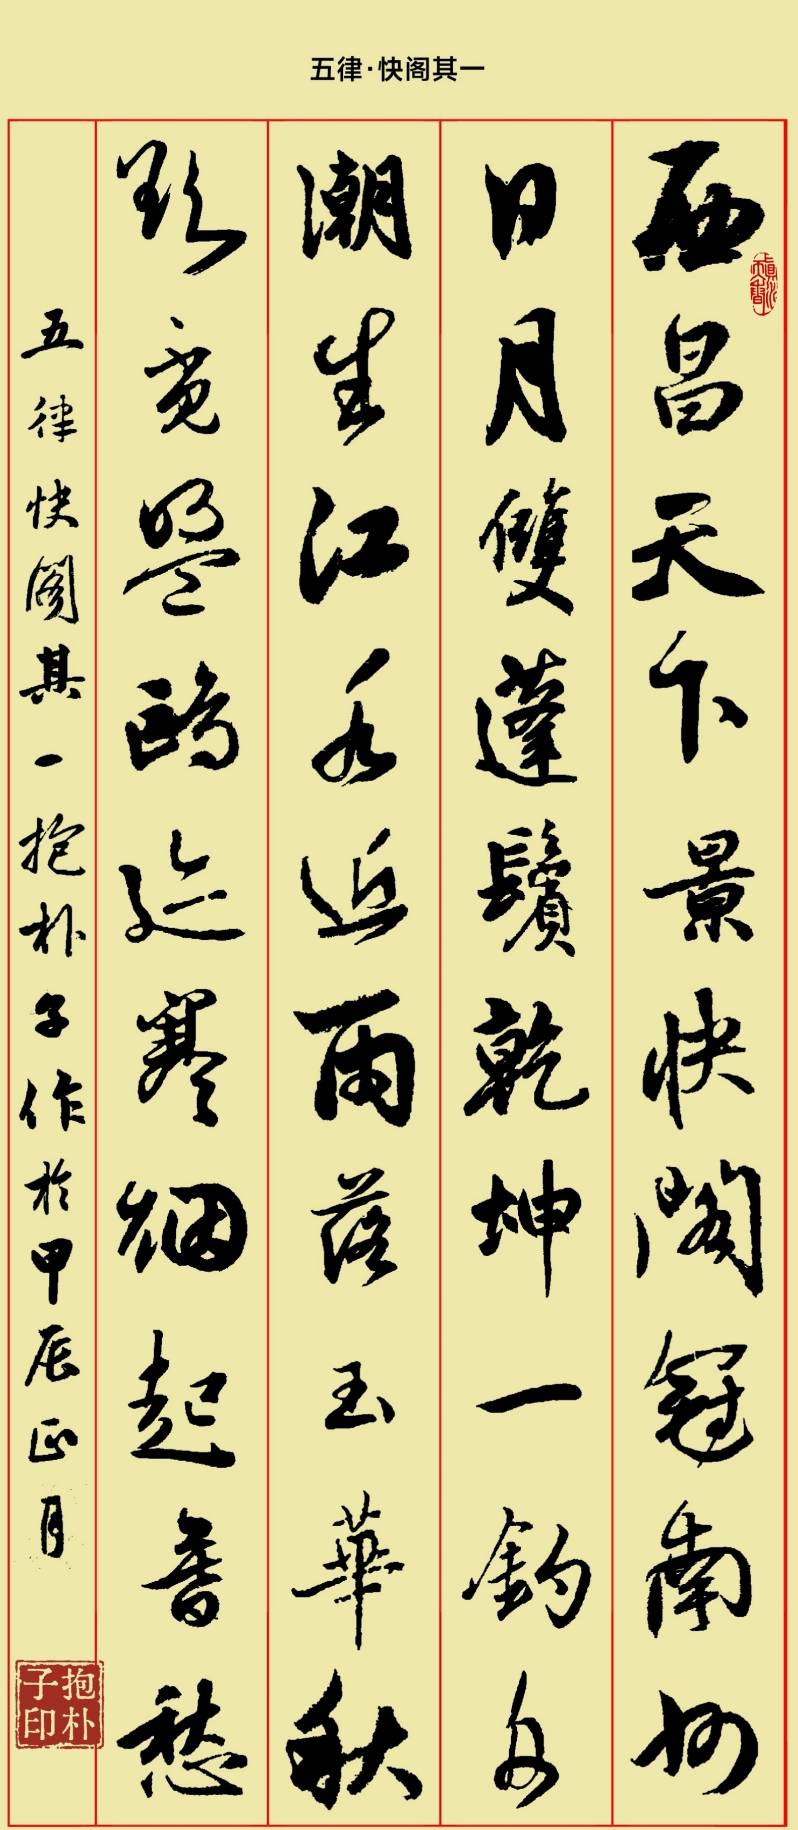 五律·快阁其一
西昌天下景快閣冠南州
日月雙蓬鬢乾坤一釣舟
潮生江水近雨落玉華秋
欲覓盟鷗迹寒烟起愁
五律快阁其一抱朴子作於甲辰正月
抱朴子印